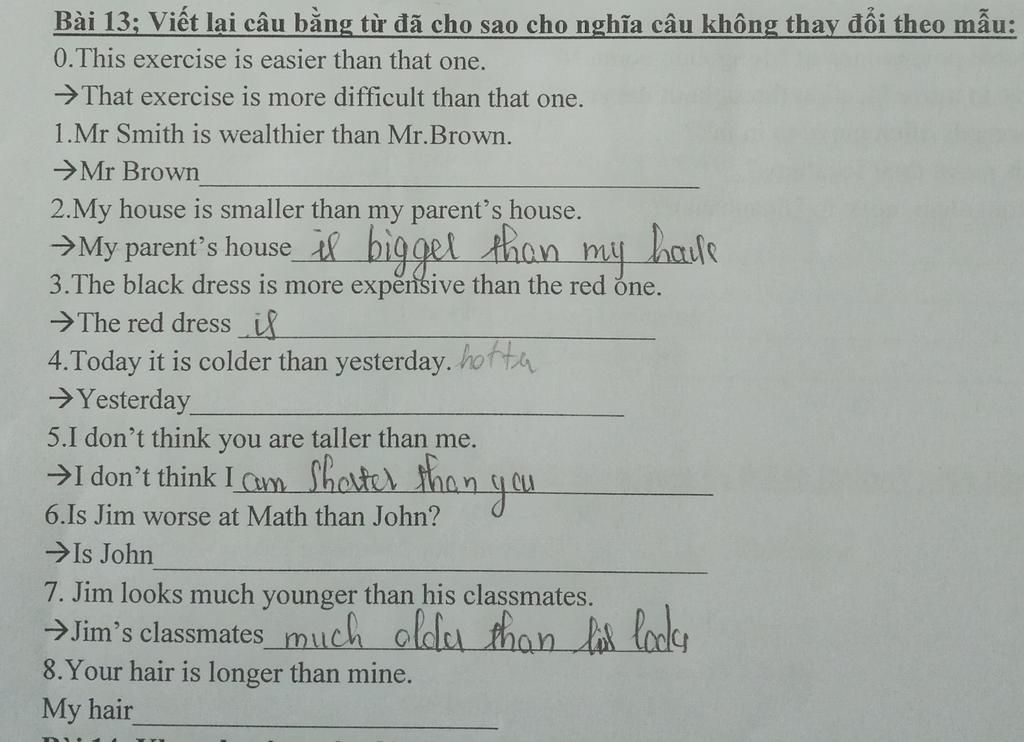 Bài 13; Viết lại câu bằng từ đã cho sao cho nghĩa câu không thay đổi theo mẫu:
0.This exercise is easier than that one.
→That exercise is more difficult than that one.
1.Mr Smith is wealthier than Mr.Brown.
→Mr Brown
2.My house is smaller than my parent's house.
→My parent's house is bigger than my house
3.The black dress is more expensive than the red one.
→The red dress is
4.Today it is colder than yesterday. hotter
→Yesterday
5.I don't think you are taller than me.
→I don't think I am shorter than you
6.Is Jim worse at Math than John?
→Is John
7. Jim looks much younger than his classmates.
→Jim's classmates much older than
8.Your hair is longer than mine.
My hair